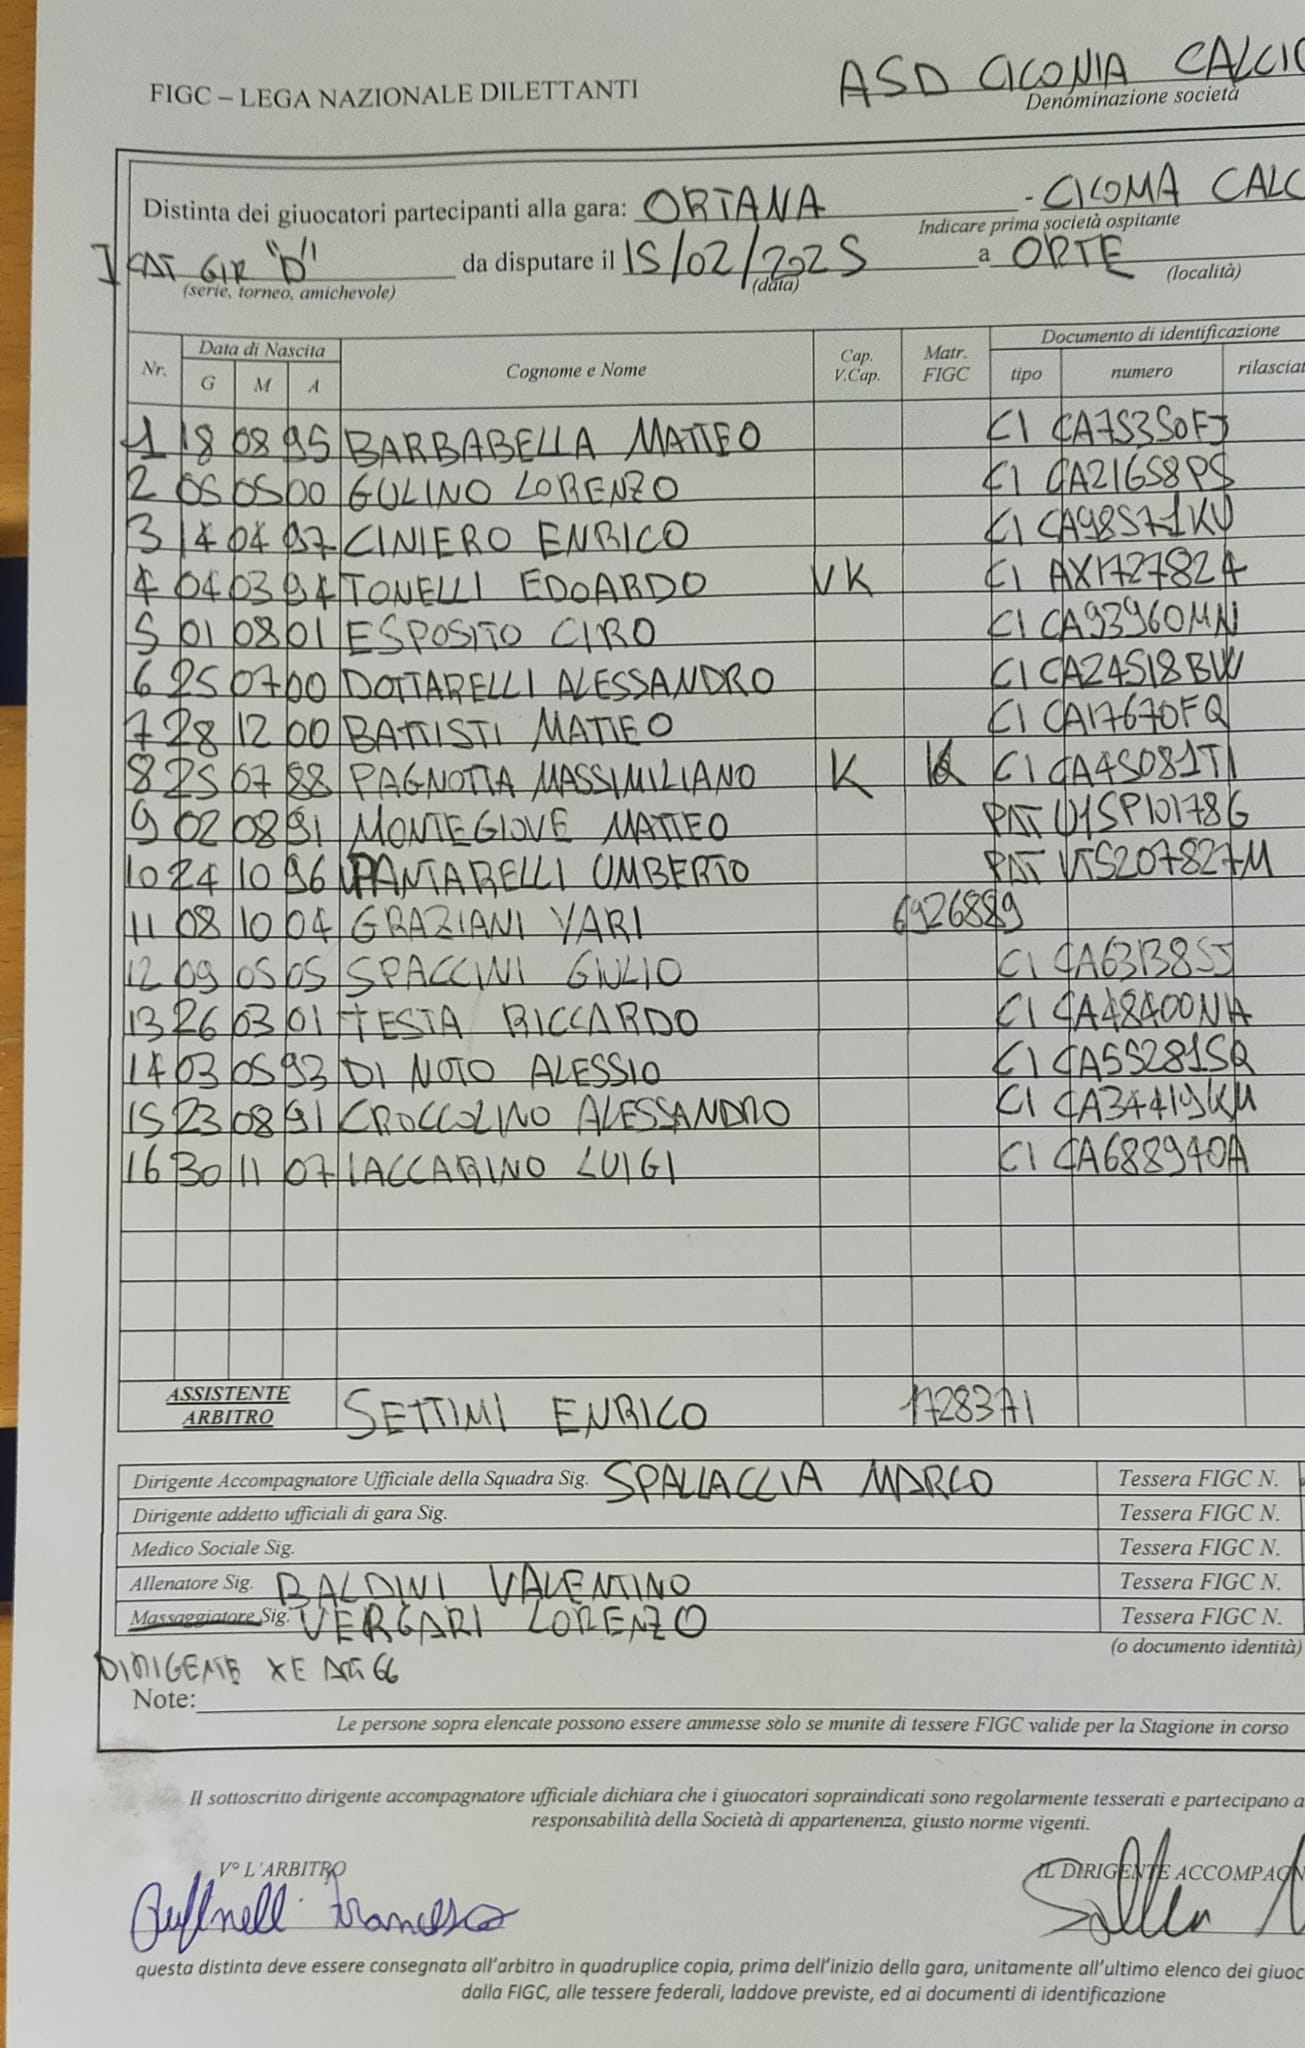 FIGC – LEGA NAZIONALE DILETTANTI
ASD CICONIA CALCIO
Denominazione società
Distinta dei giuocatori partecipanti alla gara: ORTANA - CICONIA CALC
Indicare prima società ospitante
I CAT GIR "D" da disputare il 15/02/2025 a ORTE
(serie, torneo, amichevole) (data) (località)
Nr. Data di Nascita Cognome e Nome Cap. V.Cap. Matr. FIGC Documento di identificazione
G M A tipo numero rilasciat
1 18 08 95 BARBABELLA MATTEO CI CA75350FJ
2 05 05 00 GULINO LORENZO CI CA21658PS
3 14 04 97 CINIERO ENRICO CI CA98571KU
4 04 03 94 TONELLI EDOARDO VK CI AX1727824
5 01 08 01 ESPOSITO CIRO CI CA93960MN
6 25 07 00 DOTTARELLI ALESSANDRO CI CA24518BW
7 28 12 00 BATTISTI MATTEO CI CA17670FQ
8 25 07 88 PAGNOTTA MASSIMILIANO K CI CA45081TI
9 02 08 91 MONTEGIOVE MATTEO PAT U15P10178G
10 24 10 96 PANTARELLI UMBERTO PAT VT5207827M
11 08 10 04 GRAZIANI YARI 6926889
12 09 05 05 SPACCINI GIULIO CI CA63138SJ
13 26 03 01 TESTA RICCARDO CI CA48400NH
14 03 05 93 DI NOTO ALESSIO CI CA55281SQ
15 23 08 91 CROCCOLINO ALESSANDRO CI CA34419KM
16 30 11 07 IACCARINO LUIGI CI CA68894OA
ASSISTENTE ARBITRO SETTIMI ENRICO 1728371
Dirigente Accompagnatore Ufficiale della Squadra Sig. SPALLACCIA MARCO Tessera FIGC N.
Dirigente addetto ufficiali di gara Sig. Tessera FIGC N.
Medico Sociale Sig. Tessera FIGC N.
Allenatore Sig. BALDINI VALENTINO Tessera FIGC N.
Massaggiatore Sig. VERGARI LORENZO Tessera FIGC N.
(o documento identità)
DIRIGENTE XE ART 66
Note:
Le persone sopra elencate possono essere ammesse solo se munite di tessere FIGC valide per la Stagione in corso
Il sottoscritto dirigente accompagnatore ufficiale dichiara che i giuocatori sopraindicati sono regolarmente tesserati e partecipano a
responsabilità della Società di appartenenza, giusto norme vigenti.
V° L'ARBITRO IL DIRIGENTE ACCOMPAGN
Francesco
questa distinta deve essere consegnata all'arbitro in quadruplice copia, prima dell'inizio della gara, unitamente all'ultimo elenco dei giuoc
dalla FIGC, alle tessere federali, laddove previste, ed ai documenti di identificazione